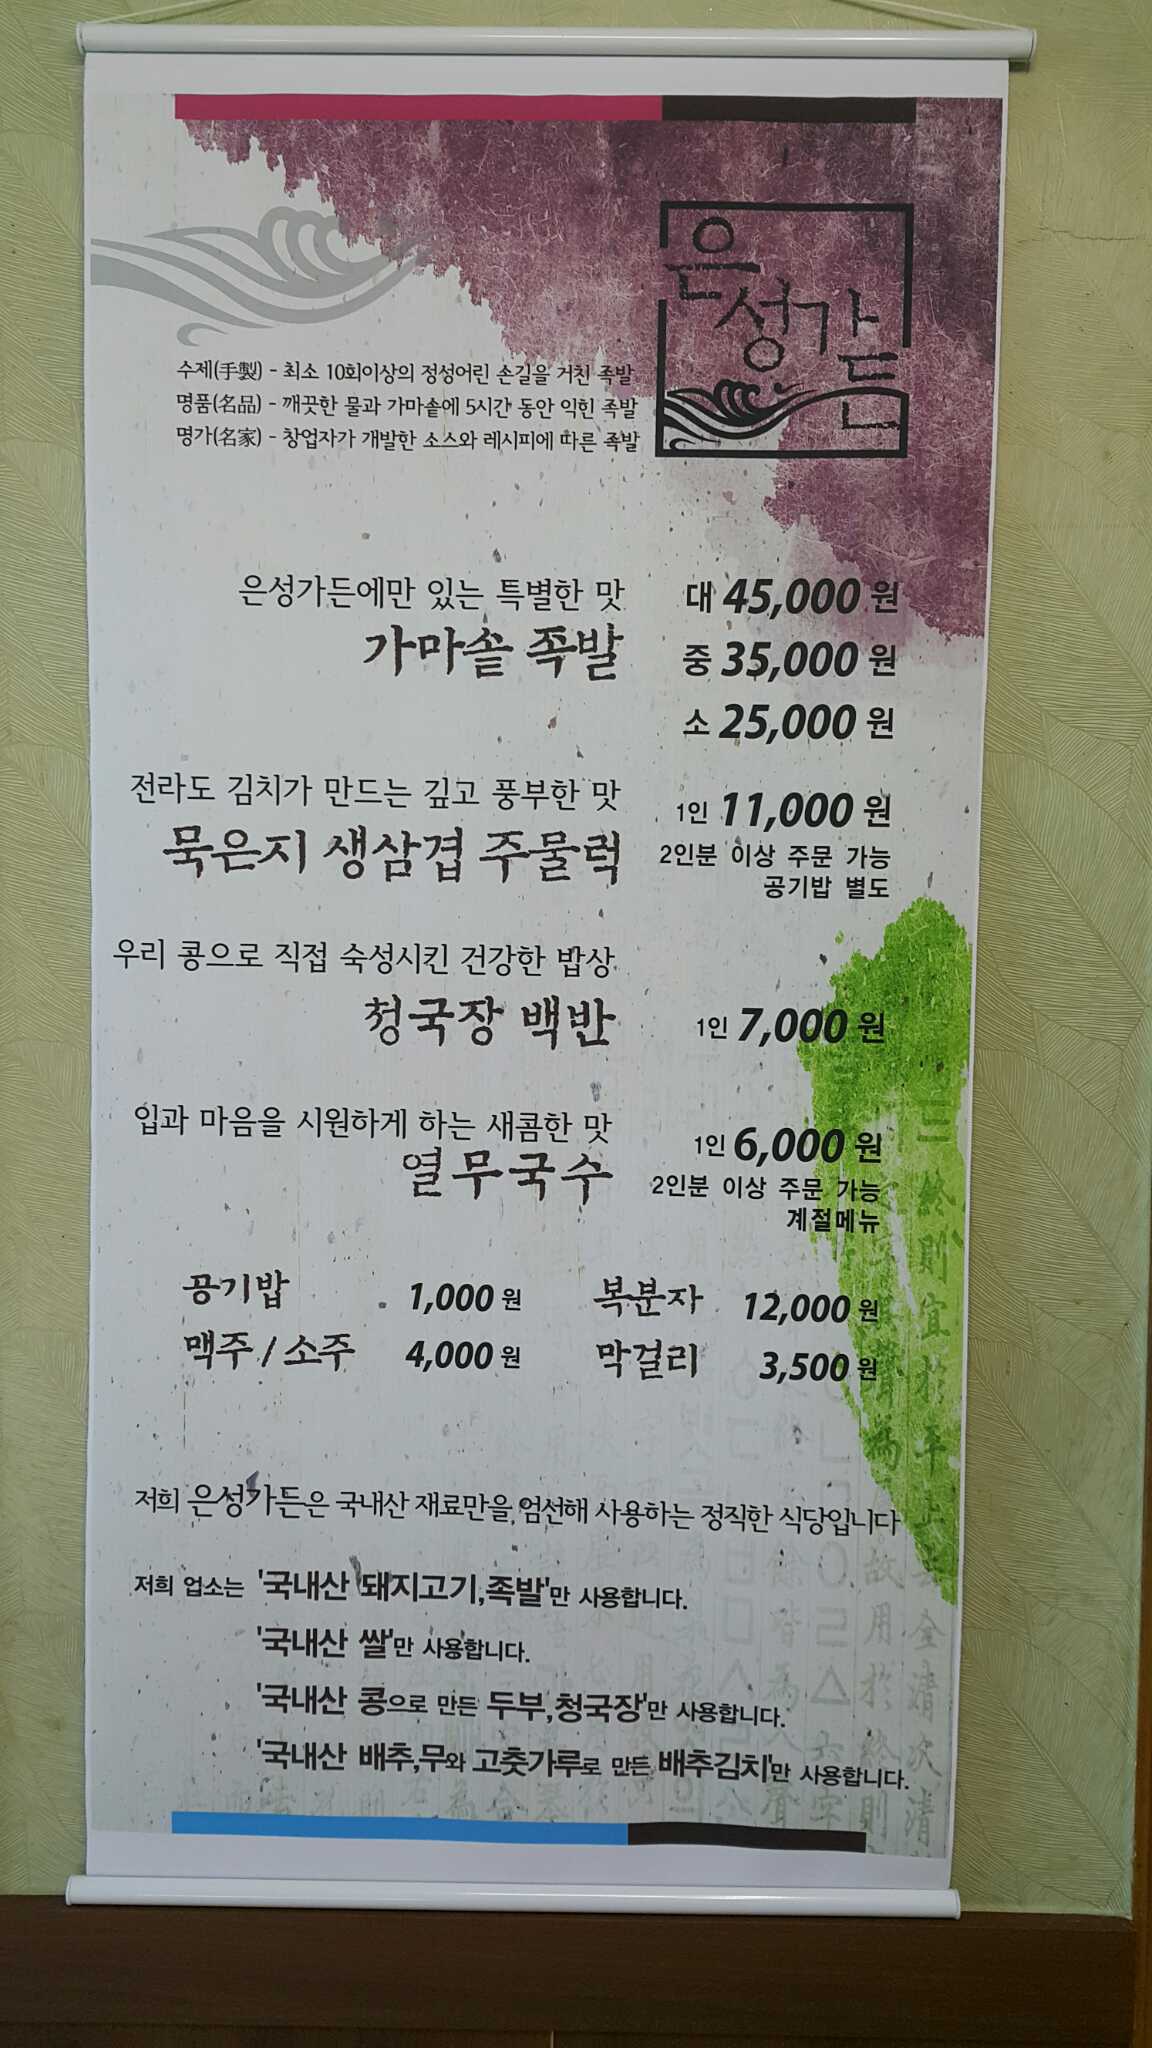 은성가든
수제(手製) - 최소 10회이상의 정성어린 손길을 거친 족발
명품(名品) - 깨끗한 물과 가마솥에 5시간 동안 익힌 족발
명가(名家) - 창업자가 개발한 소스와 레시피에 따른 족발
은성가든에만 있는 특별한 맛
가마솥 족발
대 45,000 원
중 35,000 원
소 25,000 원
전라도 김치가 만드는 깊고 풍부한 맛
묵은지 생삼겹 주물럭
1인 11,000 원
2인분 이상 주문 가능
공기밥 별도
우리 콩으로 직접 숙성시킨 건강한 밥상
청국장 백반
1인 7,000 원
입과 마음을 시원하게 하는 새콤한 맛
열무국수
1인 6,000 원
2인분 이상 주문 가능
계절메뉴
공기밥 1,000 원
복분자 12,000 원
맥주 / 소주 4,000 원
막걸리 3,500 원
저희 은성가든은 국내산 재료만을 엄선해 사용하는 정직한 식당입니다
저희 업소는 '국내산 돼지고기,족발'만 사용합니다.
'국내산 쌀'만 사용합니다.
'국내산 콩으로 만든 두부,청국장'만 사용합니다.
'국내산 배추,무와 고춧가루로 만든 배추김치'만 사용합니다.